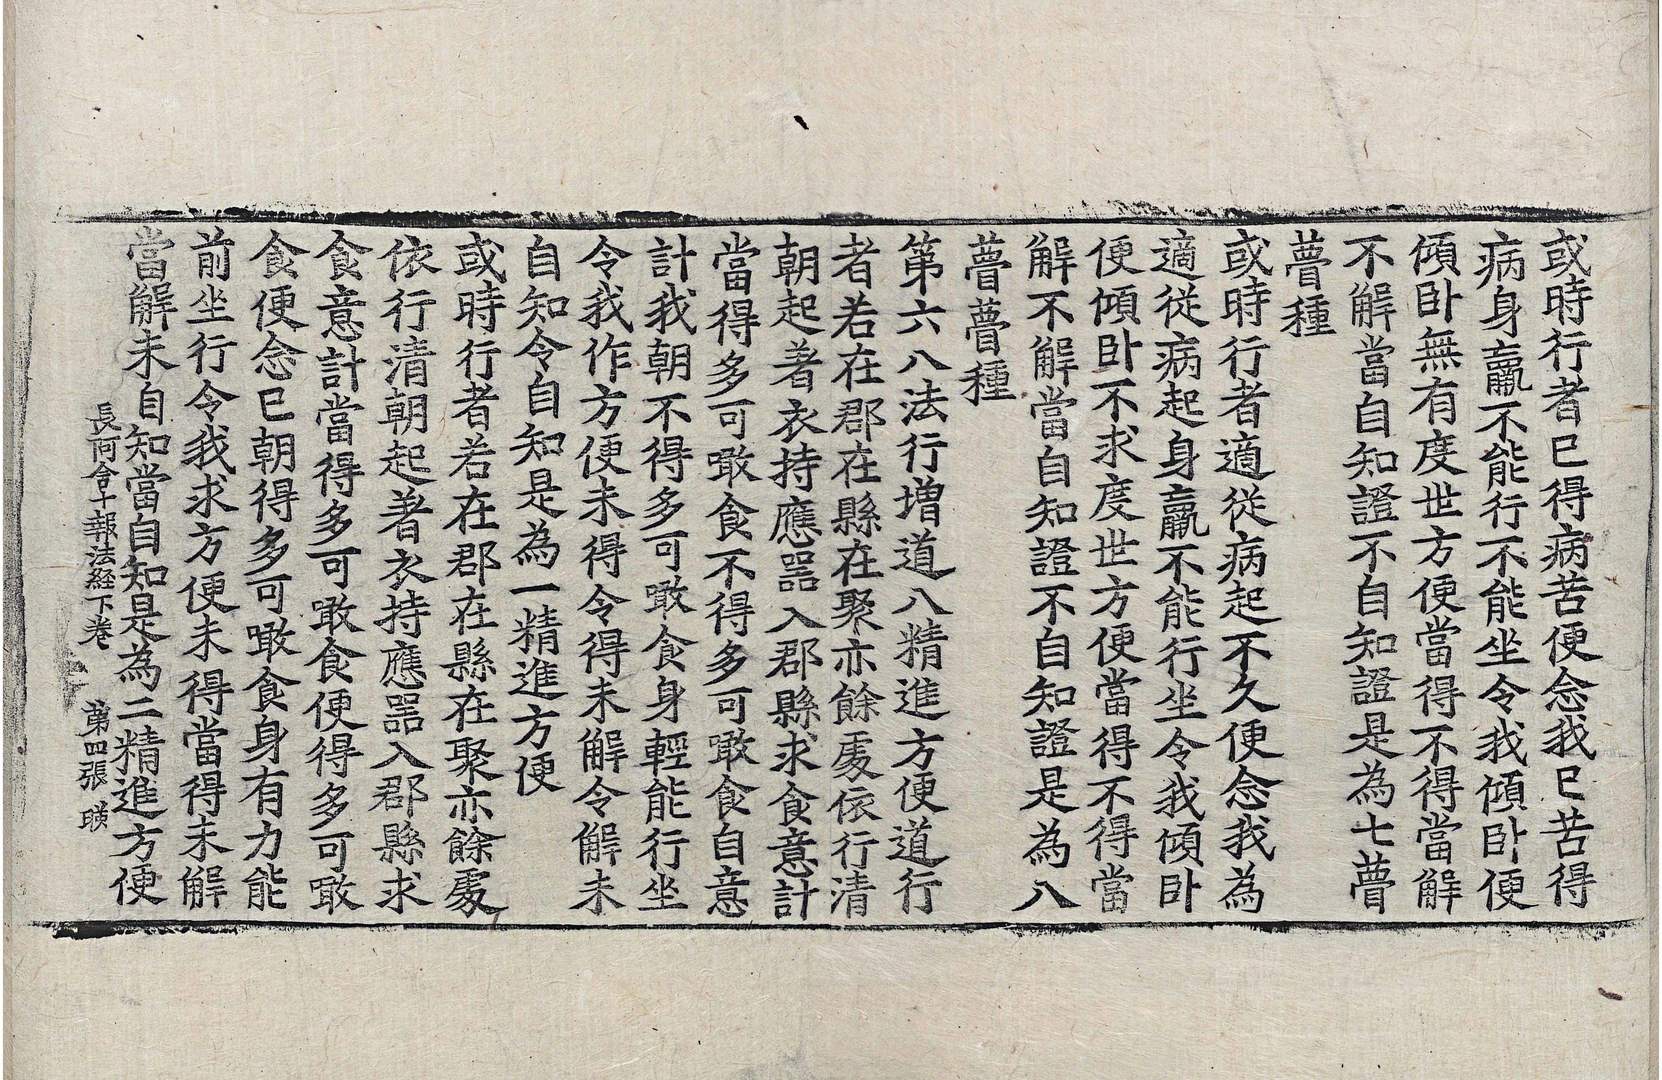 或時行者已得病苦便念我已苦得
病身羸不能行不能坐令我傾卧便
傾卧無有度世方便當得不得當解
不解當自知證不自知證是為七瞢
瞢種
或時行者適從病起不久便念我為
適從病起身羸不能行坐令我傾卧
便傾卧不求度世方便當得不得當
解不解當自知證不自知證是為八
瞢瞢種
第六八法行增道八精進方便道行
者若在郡在縣在聚亦餘處依行清
朝起著衣持應器入郡縣求食意計
當得多可噉食不得多可噉食自意
計我朝不得多可噉食身輕能行坐
令我作方便未得令得未解令解未
自知令自知是為一精進方便
或時行者若在郡在縣在聚亦餘處
依行清朝起著衣持應器入郡縣求
食意計當得多可噉食便得多可噉
食便念已朝得多可噉食身有力能
前坐行令我求方便未得當得未解
當解未自知當自知是為二精進方便
長阿含十報法経下卷 第四張 暎